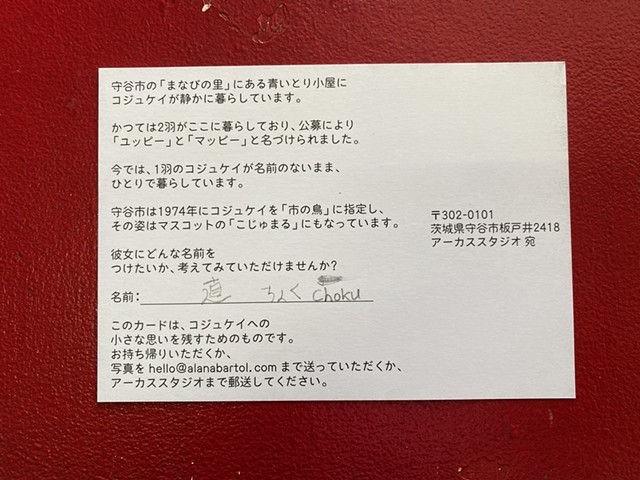 守谷市の「まなびの里」にある青いとり小屋に
コジュケイが静かに暮らしています。
かつては2羽がここに暮らしており、公募により
「ユッピー」と「マッピー」と名づけられました。
今では、1羽のコジュケイが名前のないまま、
ひとりで暮らしています。
守谷市は1974年にコジュケイを「市の鳥」に指定し、
その姿はマスコットの「こじゅまる」にもなっています。
彼女にどんな名前を
つけたいか、考えてみていただけませんか？
名前： 直 ちょく choku
このカードは、コジュケイへの
小さな思いを残すためのものです。
お持ち帰りいただくか、
写真を hello@alanabartol.com まで送っていただくか、
アーカススタジオまで郵送してください。
〒302-0101
茨城県守谷市板戸井2418
アーカススタジオ 宛